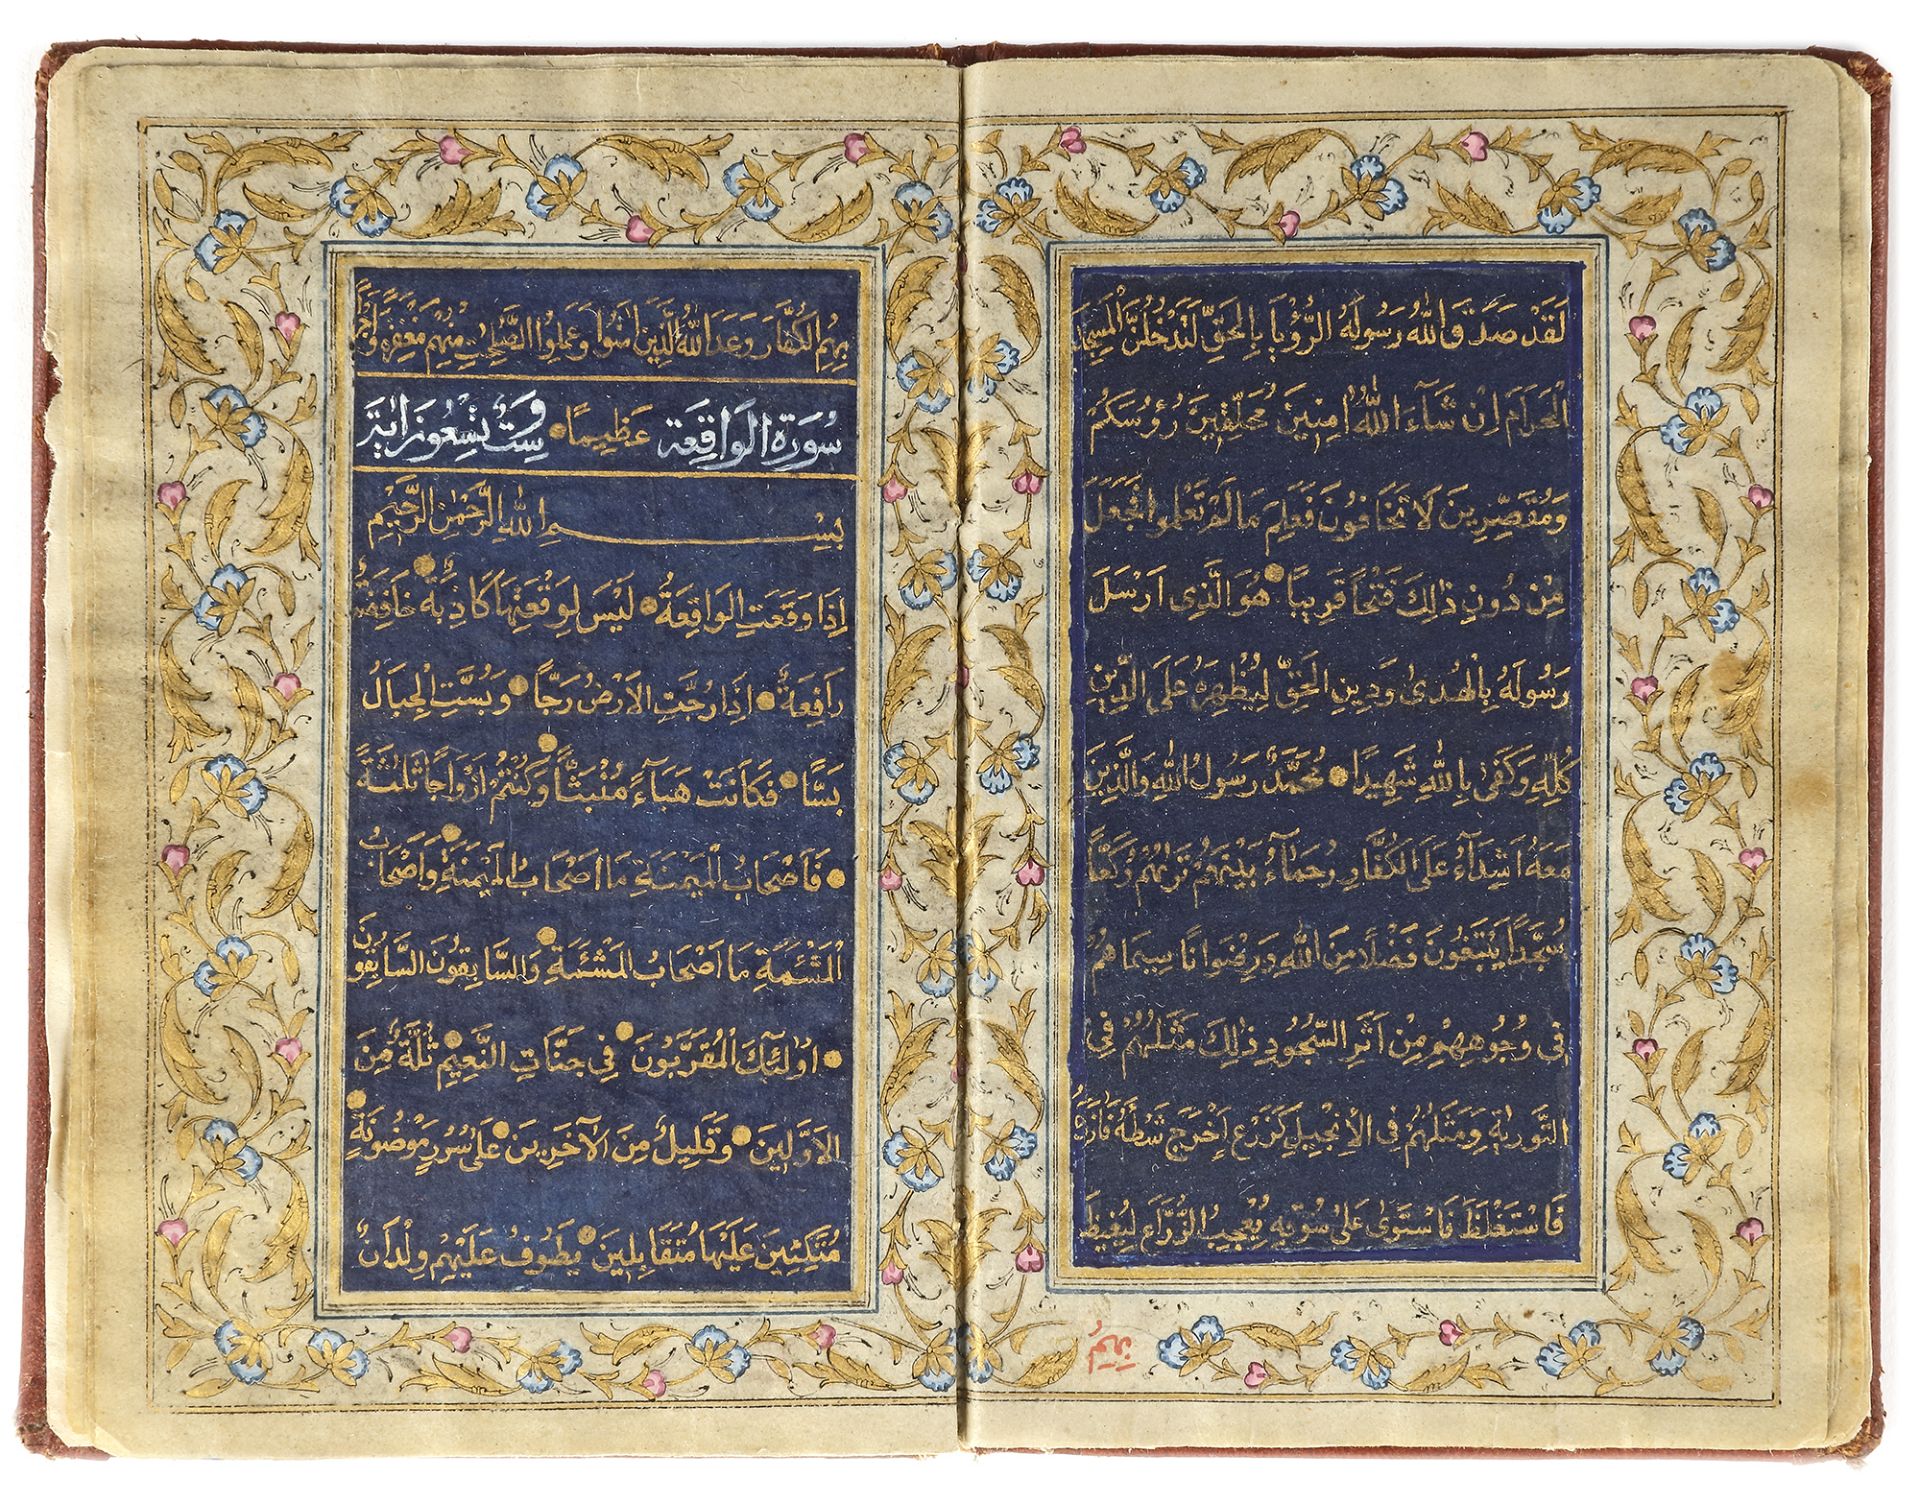 لَقَدْ صَدَقَ اللّٰهُ رَسُولَهُ الرُّؤْيَا بِالْحَقِّ لَتَدْخُلُنَّ الْمَسْجِدَ
الْحَرَامَ اِنْ شَآءَ اللّٰهُ اٰمِنِينَ مُحَلِّقِينَ رُؤُسَكُمْ
وَمُقَصِّرِينَ لَا تَخَافُونَ فَعَلِمَ مَا لَمْ تَعْلَمُوا فَجَعَلَ
مِنْ دُونِ ذٰلِكَ فَتْحًا قَرِيبًا هُوَ الَّذِى اَرْسَلَ
رَسُولَهُ بِالْهُدٰى وَدِينِ الْحَقِّ لِيُظْهِرَهُ عَلَى الدِّينِ
كُلِّهِ وَكَفٰى بِاللّٰهِ شَهِيدًا مُحَمَّدٌ رَسُولُ اللّٰهِ وَالَّذِينَ
مَعَهُ اَشِدَّآءُ عَلَى الْكُفَّارِ رُحَمَآءُ بَيْنَهُمْ تَرٰيهُمْ رُكَّعًا
سُجَّدًا يَبْتَغُونَ فَضْلًا مِنَ اللّٰهِ وَرِضْوَانًا سِيمَاهُمْ
فِى وُجُوهِهِمْ مِنْ اَثَرِ السُّجُودِ ذٰلِكَ مَثَلُهُمْ فِى
التَّوْرٰيةِ وَمَثَلُهُمْ فِى الْاِنْجِيلِ كَزَرْعٍ اَخْرَجَ شَطْأَهُ فَاٰزَرَهُ
فَاسْتَغْلَظَ فَاسْتَوٰى عَلٰى سُوقِهِ يُعْجِبُ الزُّرَّاعَ لِيَغِيظَ
بِهِمُ
بِهِمُ الْكُفَّارَ وَعَدَ اللّٰهُ الَّذِينَ اٰمَنُوا وَعَمِلُوا الصَّالِحَاتِ مِنْهُمْ مَغْفِرَةً وَاَجْرًا
سُورَةُ الْوَاقِعَة عَظِيمًا سِتٌّ وَتِسْعُونَ اٰيَة
بِسْمِ اللّٰهِ الرَّحْمٰنِ الرَّحِيمِ
اِذَا وَقَعَتِ الْوَاقِعَةُ لَيْسَ لِوَقْعَتِهَا كَاذِبَةٌ خَافِضَةٌ
رَافِعَةٌ اِذَا رُجَّتِ الْاَرْضُ رَجًّا وَبُسَّتِ الْجِبَالُ
بَسًّا فَكَانَتْ هَبَآءً مُنْبَثًّا وَكُنْتُمْ اَزْوَاجًا ثَلٰثَةً
فَاَصْحَابُ الْمَيْمَنَةِ مَا اَصْحَابُ الْمَيْمَنَةِ وَاَصْحَابُ
الْمَشْئَمَةِ مَا اَصْحَابُ الْمَشْئَمَةِ وَالسَّابِقُونَ السَّابِقُونَ
اُولٰئِكَ الْمُقَرَّبُونَ فِى جَنَّاتِ النَّعِيمِ ثُلَّةٌ مِنَ
الْاَوَّلِينَ وَقَلِيلٌ مِنَ الْآخِرِينَ عَلٰى سُرُرٍ مَوْضُونَةٍ
مُتَّكِئِينَ عَلَيْهَا مُتَقَابِلِينَ يَطُوفُ عَلَيْهِمْ وِلْدَانٌ